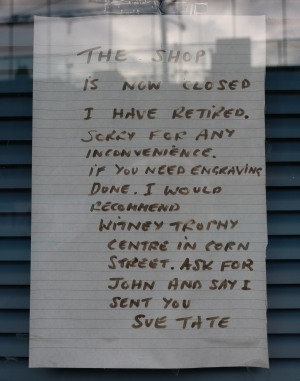 THE SHOP
IS NOW CLOSED
I HAVE RETIRED.
SORRY FOR ANY
INCONVENIENCE.
IF YOU NEED ENGRAVING
DONE. I WOULD
RECOMMEND
WITNEY TROPHY
CENTRE IN CORN
STREET. ASK FOR
JOHN AND SAY I
SENT YOU
SUE TATE